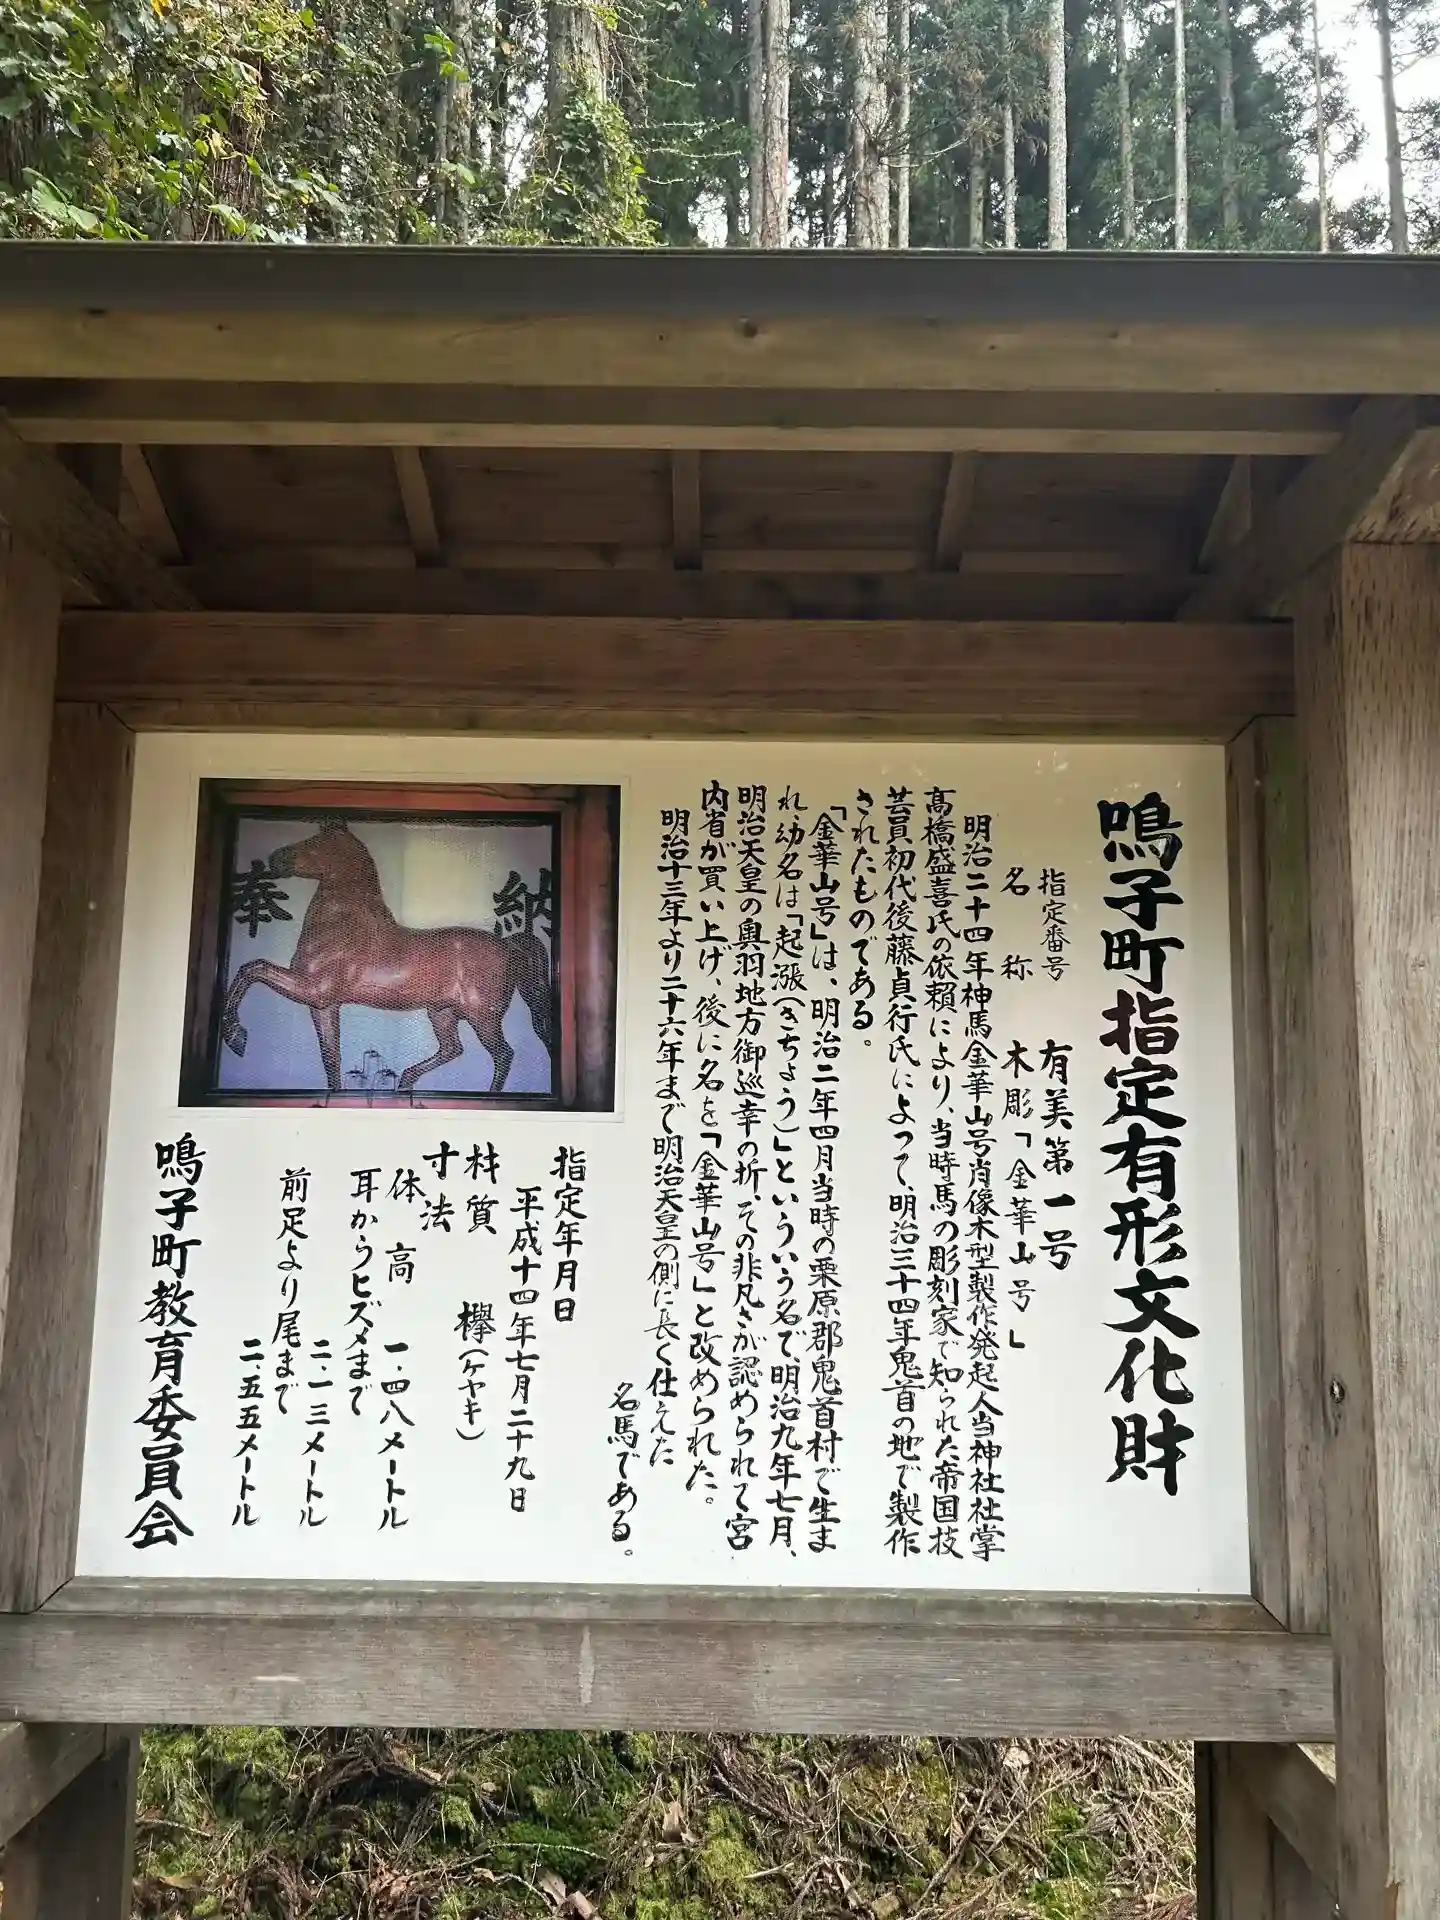 鳴子町指定有形文化財
指定番号 有美第一号
名称 木彫「金華山号」
明治二十四年神馬金華山号肖像木型製作発起人当神社社掌
高橋盛喜氏の依頼により、当時馬の彫刻家で知られた帝国技
芸員初代後藤貞行氏によって、明治三十四年鬼首の地で製作
されたものである。
「金華山号」は、明治二年四月当時の栗原郡鬼首村で生ま
れ、幼名は「起漲(きちょう)」といういう名で、明治九年七月、
明治天皇の奥羽地方御巡幸の折、その非凡さが認められて宮
内省が買い上げ、後に名を「金華山号」と改められた。
明治十三年より二十六年まで明治天皇の側に長く仕えた
名馬である。
奉納
指定年月日
平成十四年七月二十九日
材質 欅(ケヤキ)
寸法
体高 一.四八メートル
耳からヒズメまで
二.一三メートル
前足より尾まで
二.五五メートル
鳴子町教育委員会